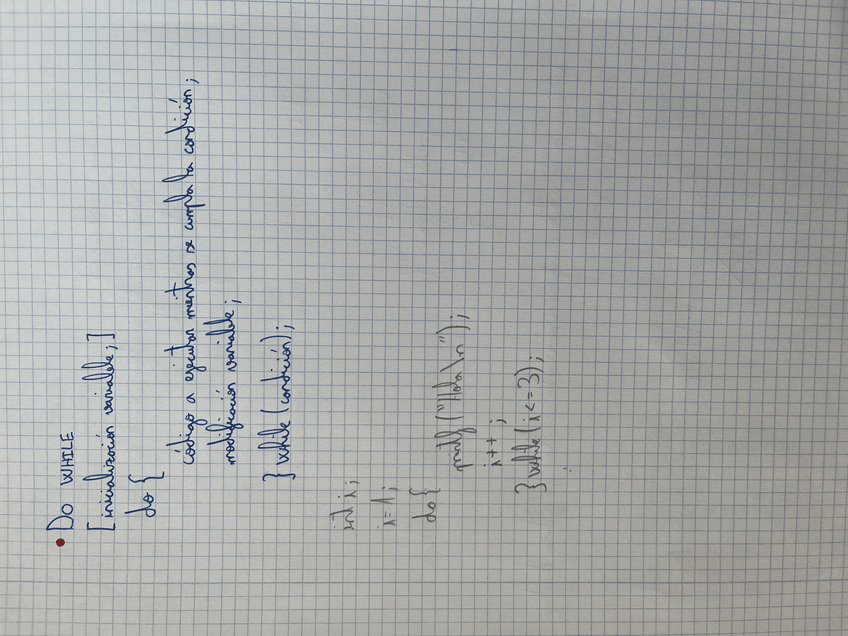 • DO WHILE
[inicialización variable;]
do {
código a ejecutar mientras se cumpla la condición;
modificación variable;
} while (condición);
int i;
i=1;
do {
printf ("Hola\n");
i++;
} while (i<=3);